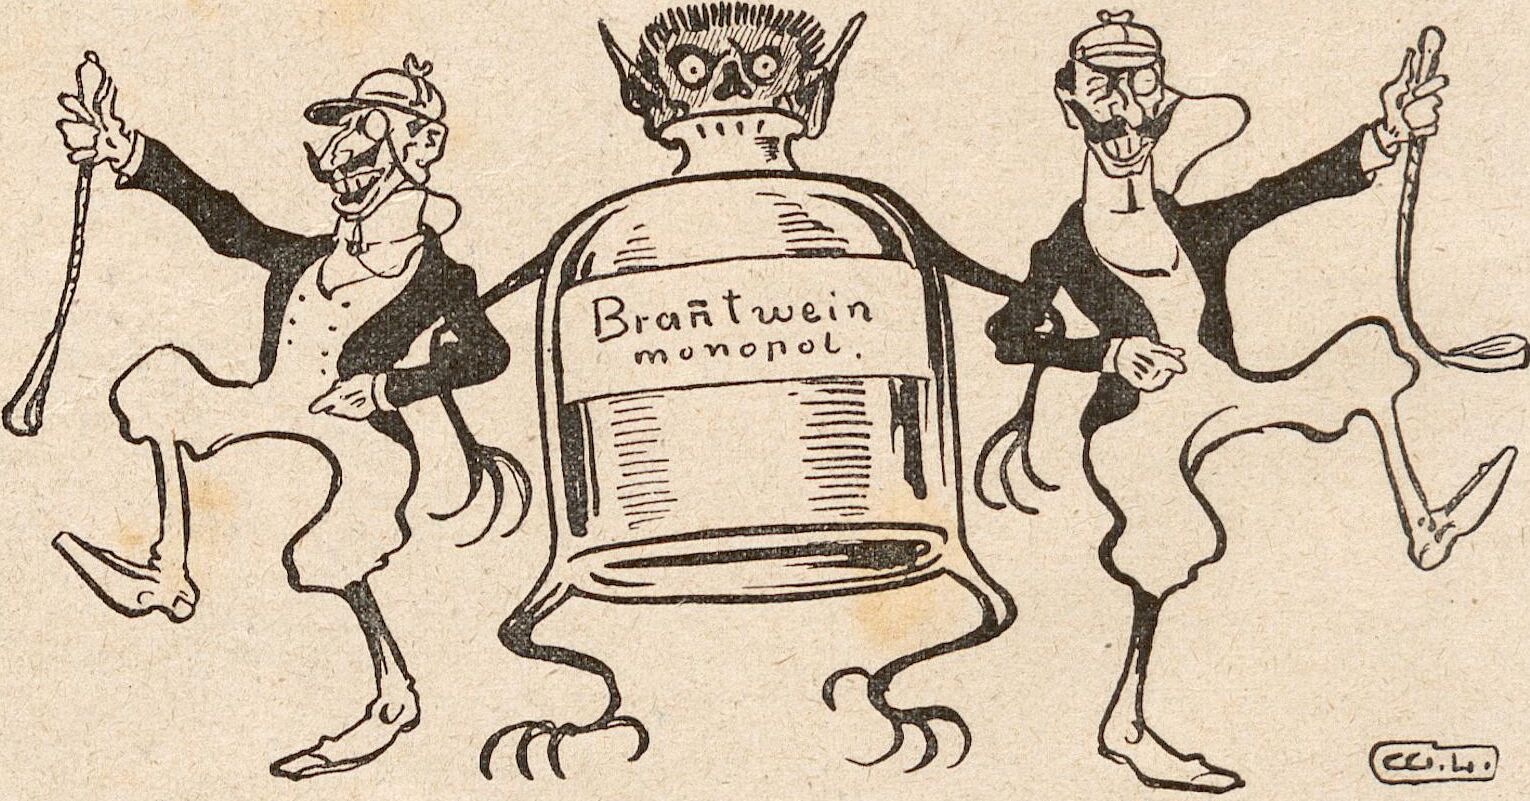 Brañtwein
monopol.